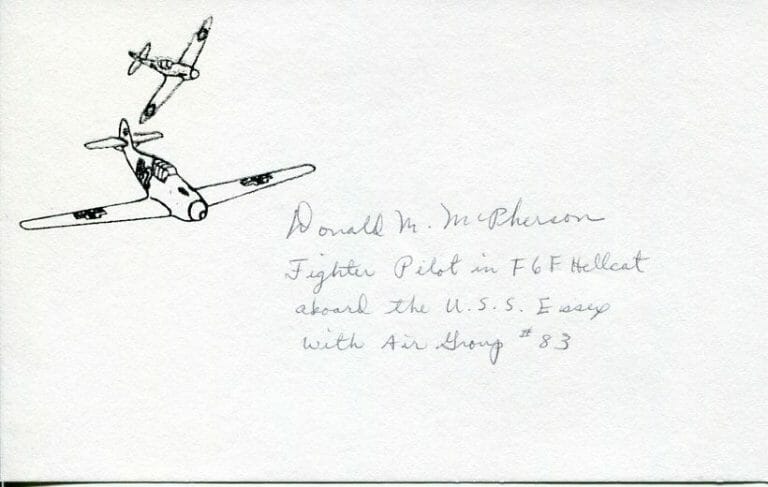 Donald M. McPherson
Fighter Pilot in F6F Hellcat
aboard the U.S.S. Essex
with Air Group #83